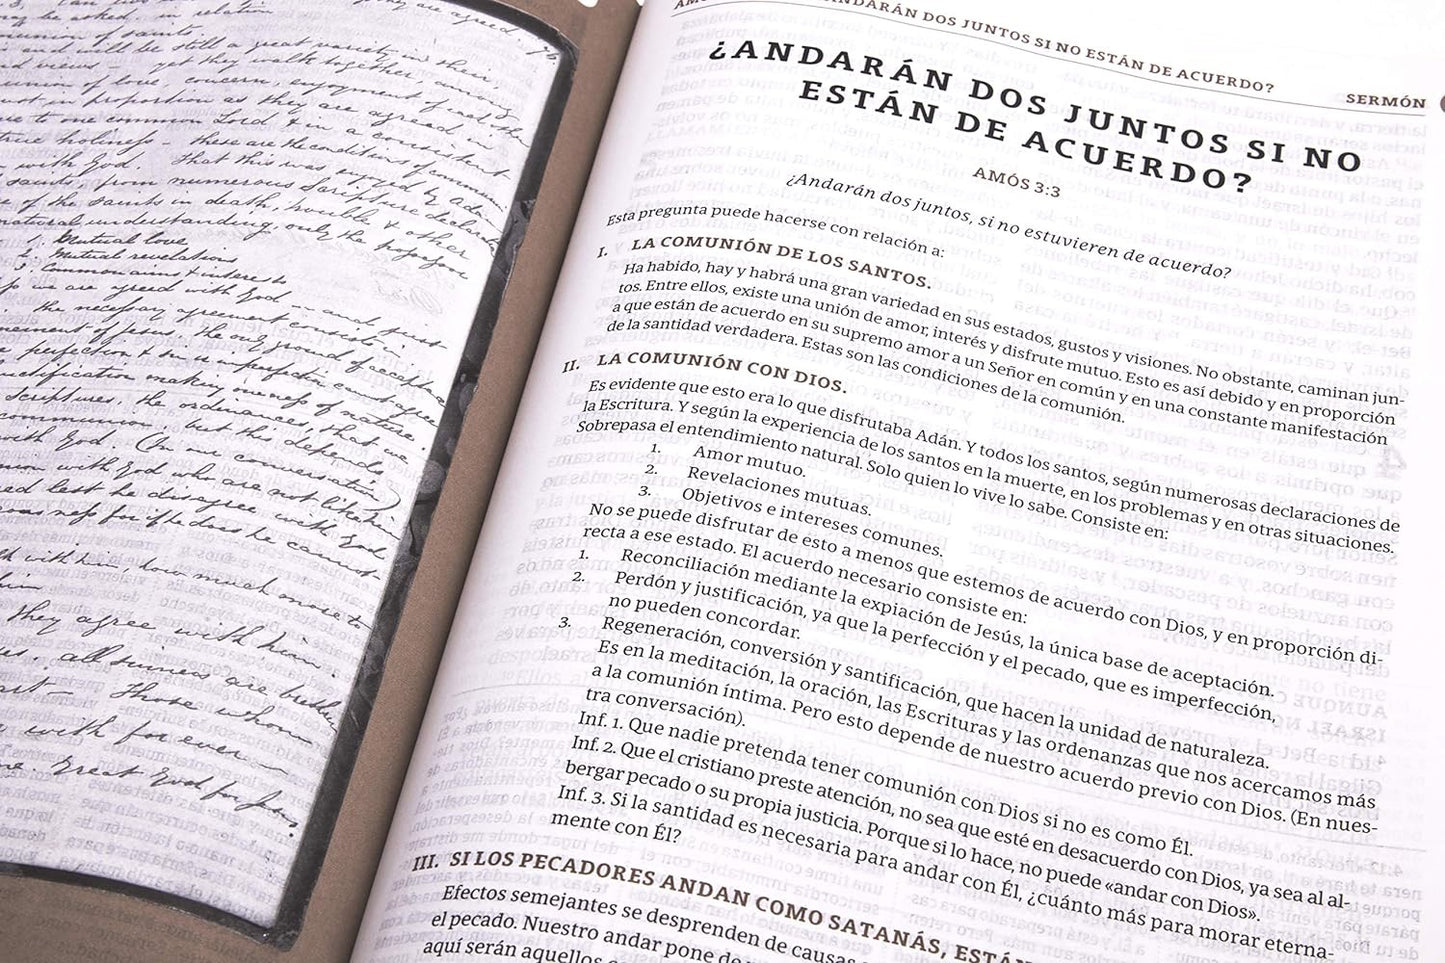 may be asked, in relation
union of saints.
and will be still a great variety in their
and views yet they walk together, and
union of love, concern, enjoyment of each other
in proportion as they are agreed in
to one common Lord & in a constant
true holiness - these are the conditions of communion
with God. That this was enjoyed by Adam
saints, from numerous Scripture declarations
of the saints in death, trouble & other
natural understanding, only the
1. Mutual love
2. Mutual revelations
3. Common aims & interests
we are agreed with God - and just
the necessary agreement consists in
of Jesus, the only ground of acceptance
perfection & sin or imperfection cannot agree
making oneness of nature
Scriptures, the ordinances, that we
communion, but this depends
with God. (In our conversation)
with God who are not like him
lest he disagree with God
for if he does he cannot
with him, how much more to
They agree with him
all sinners are
Those whom
with for ever
Great God for Jesus
ANDARÁN DOS JUNTOS SI NO ESTÁN DE ACUERDO? SERMÓN
¿ANDARÁN DOS JUNTOS SI NO
ESTÁN DE ACUERDO?
AMÓS 3:3
¿Andarán dos juntos, si no estuvieren de acuerdo?
Esta pregunta puede hacerse con relación a:
I. LA COMUNIÓN DE LOS SANTOS.
Ha habido, hay y habrá una gran variedad en sus estados, gustos y visiones. No obstante, caminan jun-
tos. Entre ellos, existe una unión de amor, interés y disfrute mutuo. Esto es así debido y en proporción
a que están de acuerdo en su supremo amor a un Señor en común y en una constante manifestación
de la santidad verdadera. Estas son las condiciones de la comunión.
II. LA COMUNIÓN CON DIOS.
Es evidente que esto era lo que disfrutaba Adán. Y todos los santos, según numerosas declaraciones de
la Escritura. Y según la experiencia de los santos en la muerte, en los problemas y en otras situaciones.
Sobrepasa el entendimiento natural. Solo quien lo vive lo sabe. Consiste en:
1. Amor mutuo.
2. Revelaciones mutuas.
3. Objetivos e intereses comunes.
No se puede disfrutar de esto a menos que estemos de acuerdo con Dios, y en proporción di-
recta a ese estado. El acuerdo necesario consiste en:
1. Reconciliación mediante la expiación de Jesús, la única base de aceptación.
2. Perdón y justificación, ya que la perfección y el pecado, que es imperfección,
no pueden concordar.
3. Regeneración, conversión y santificación, que hacen la unidad de naturaleza.
Es en la meditación, la oración, las Escrituras y las ordenanzas que nos acercamos más
a la comunión íntima. Pero esto depende de nuestro acuerdo previo con Dios. (En nues-
tra conversación).
Inf. 1. Que nadie pretenda tener comunión con Dios si no es como Él.
Inf. 2. Que el cristiano preste atención, no sea que esté en desacuerdo con Dios, ya sea al al-
bergar pecado o su propia justicia. Porque si lo hace, no puede «andar con Dios».
Inf. 3. Si la santidad es necesaria para andar con Él, ¿cuánto más para morar eterna-
mente con Él?
III. SI LOS PECADORES ANDAN COMO SATANÁS,
Efectos semejantes se desprenden de causas
el pecado. Nuestro andar pone de
aquí serán aquellos